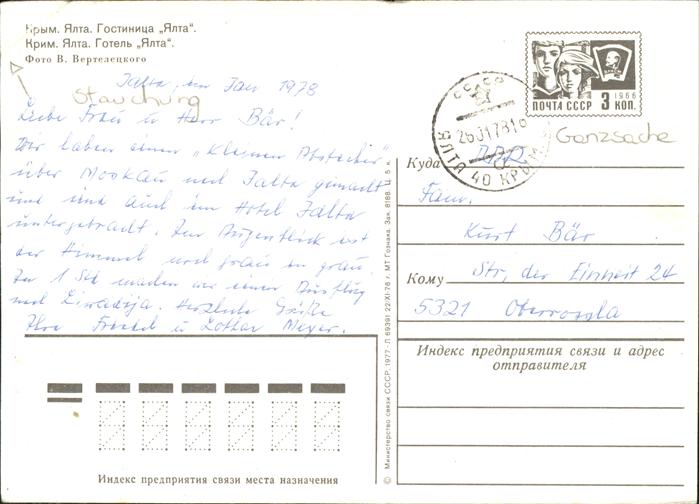 Крым. Ялта. Гостиница „Ялта“.
Крим. Ялта. Готель „Ялта“.
Фото В. Вертелецкого
Jalta, im Jan 1978
Stauchung
Liebe Frau u Herr Bär!
Wir haben einen „Kleinen Abstecher"
über Moskau nach Jalta gemacht
und sind auch im Hotel Jalta
untergebracht. Im Augenblick ist
der Himmel noch grau in grau.
In 1 Std machen wir einen Ausflug
nach Liwadija. Herzliche Grüße
Ihre Friedel u Lothar Meyer.
ПОЧТА СССР
1966
3 КОП.
СССР
ЯЛТА 40 КРЫМ
Ganzsache
Куда
DDR
Fam.
Kurt Bär
Кому
Str. der Einheit 24
5321 Oberrossla
Индекс предприятия связи и адрес
отправителя
Индекс предприятия связи места назначения
© Министерство связи СССР, 1977. Л 69391 22/XI-76 г. МТ Гознака. Зак. 8188. Ц. 5 к.